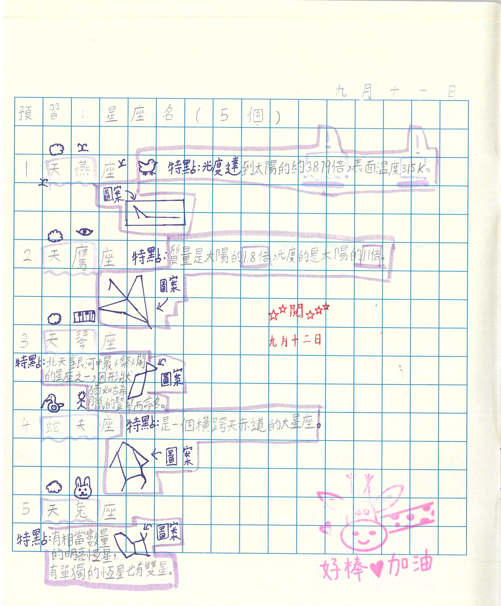 九月十一日
預習:星座名(5個)
1 天燕座 特點:光度達到太陽的約3879倍,表面溫度315K。
圖案
2 天鷹座 特點:質量是太陽的1.8倍,光度的是太陽的11倍。
圖案
☆☆閱☆☆☆
九月十二日
3 天琴座
特點:北天銀河中最燦爛
的星座之一,因形狀
猶如古希
而命名。
圖案
4 蛇夫座 特點:是一個橫跨天赤道的大星座。
圖案
5 天兔座
特點:有相當數量
的明亮恆星,
有單獨的恆星也有雙星。
圖案
好棒♥加油